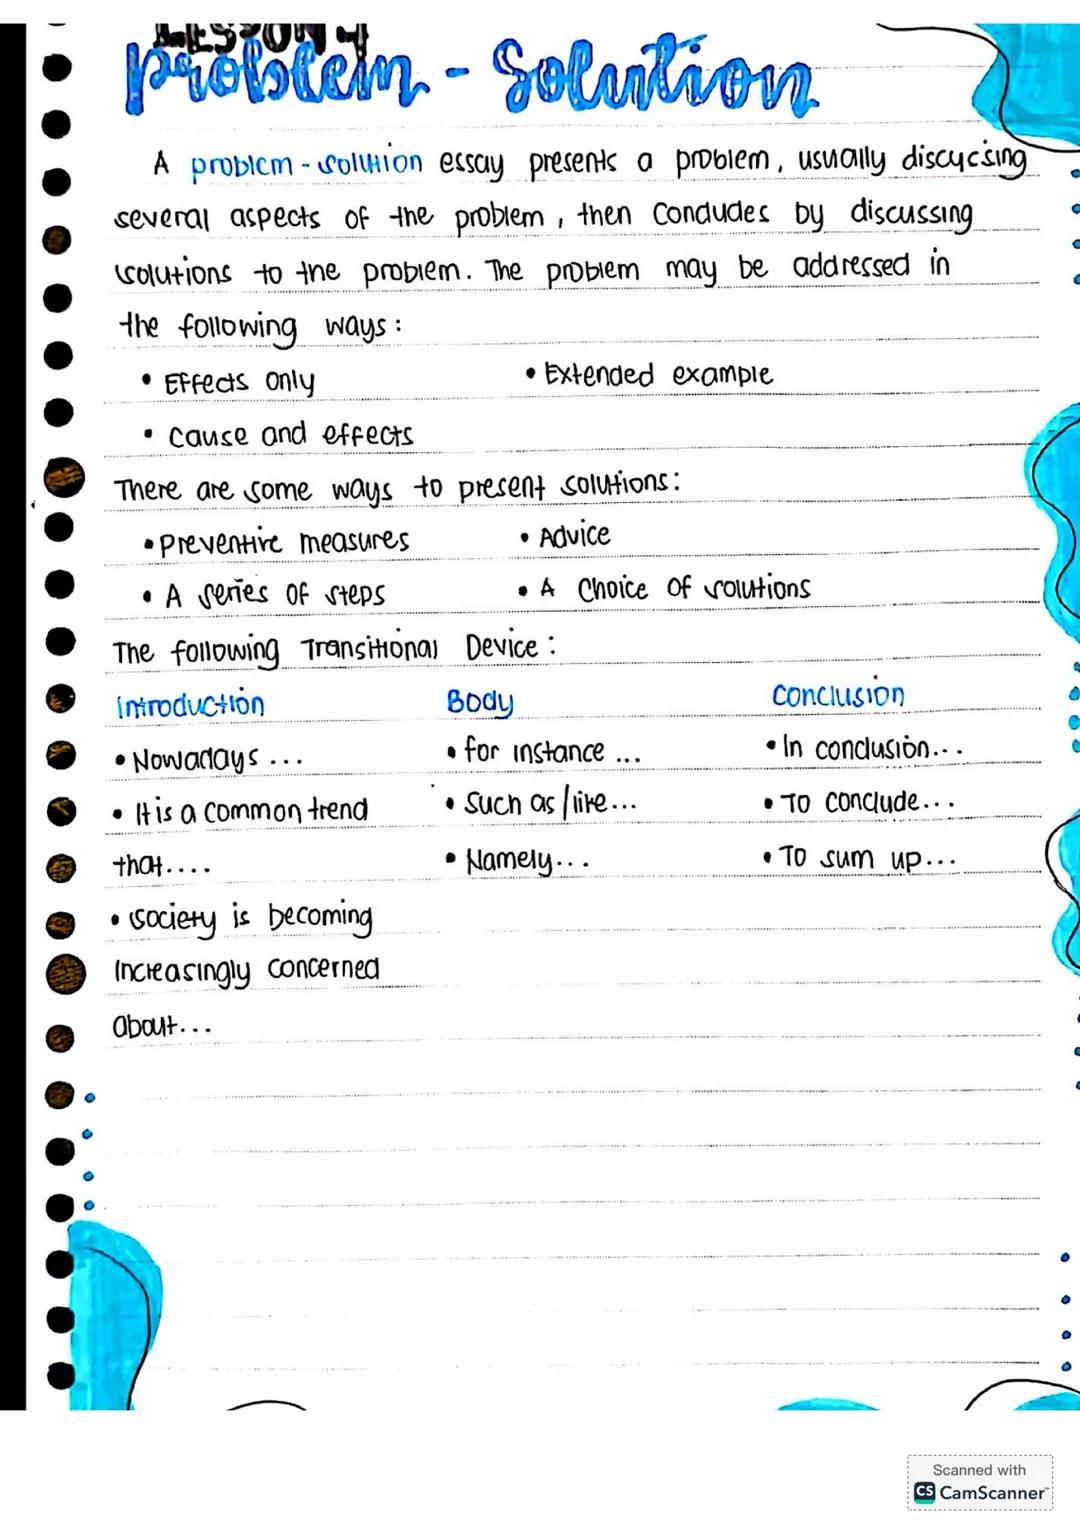 LESSON 4
Problem - Solution
A problem - solution essay presents a problem, usually discycsing
several aspects of the problem, then concludes by discussing
solutions to the problem. The problem may be addressed in
the following ways:
• Effects only • Extended example
• cause and effects
There are some ways to present solutions:
• Preventive measures • Advice
• A series of steps • A Choice of solutions
The following Transitional Device:
Introduction Body Conclusion
• Nowadays ... • for instance ... • In conclusion...
• It is a common trend • Such as / like... • To conclude...
that.... • Namely... • To sum up...
• society is becoming
Increasingly concerned
about...
Scanned with
CS CamScanner™